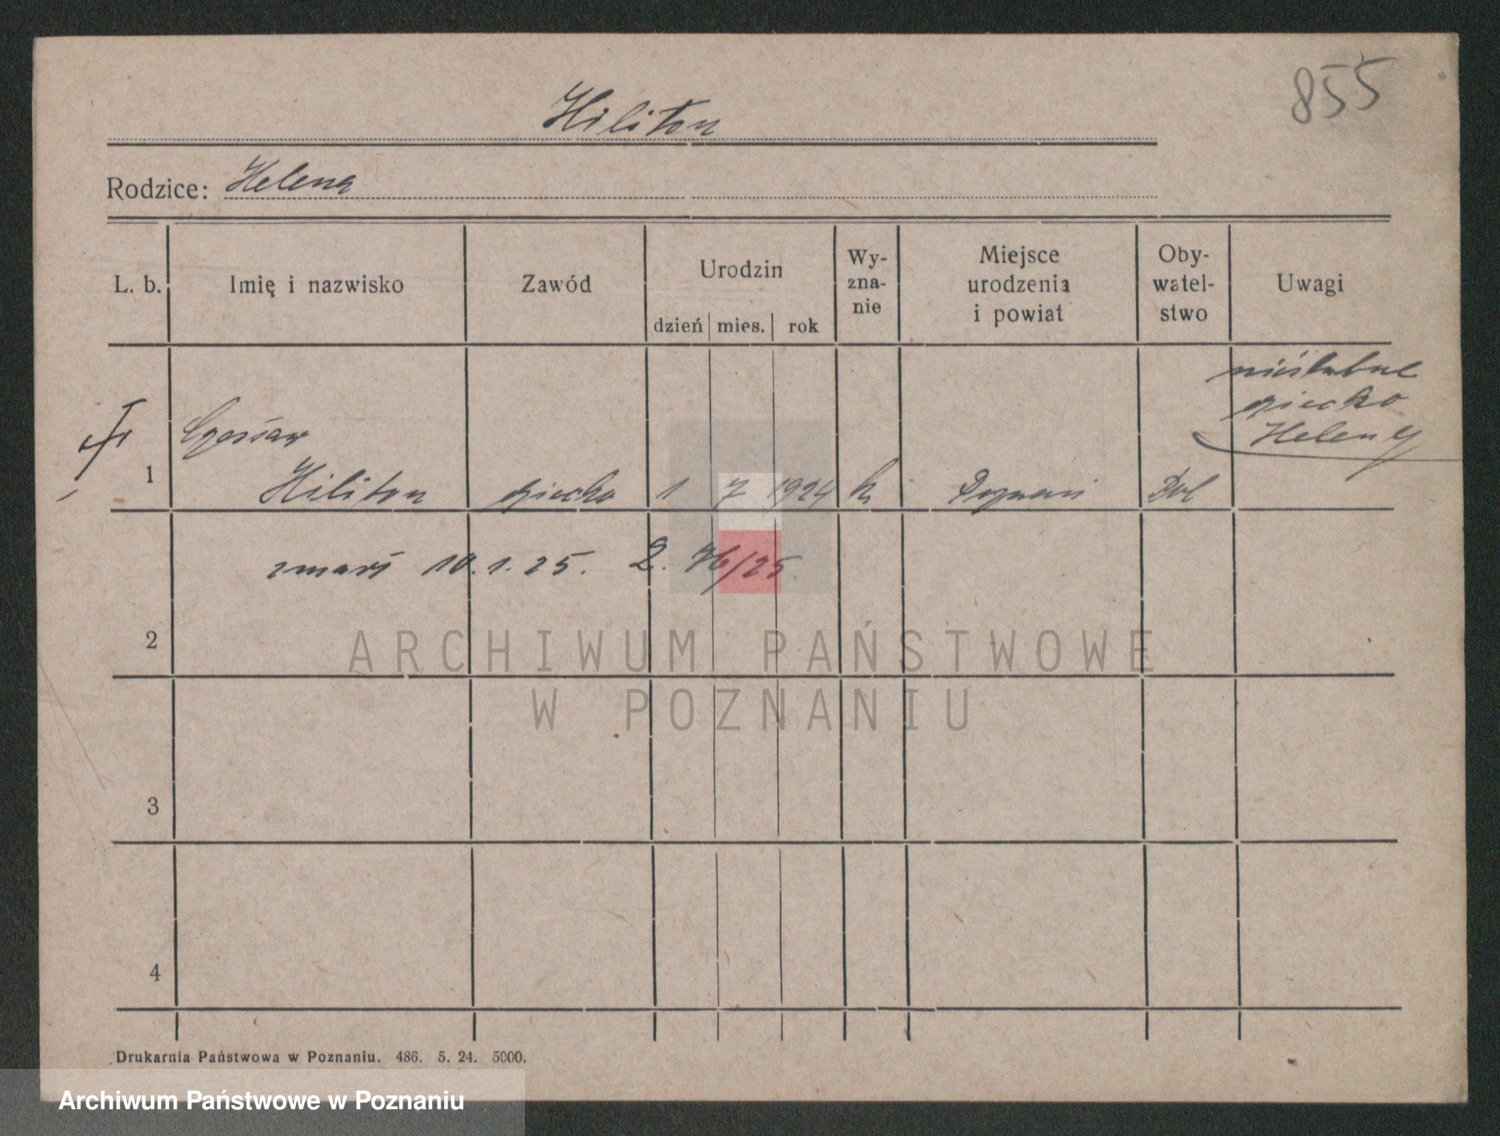 855
Hiliton
Rodzice: Helena
L. b. Imię i nazwisko Zawód Urodzin dzień mies. rok Wy-zna-nie Miejsce urodzenia i powiat Oby-watel-stwo Uwagi
nieślubne
dziecko
Heleny
1 Czesław
Hiliton dziecko 1 7 1924 k Poznań Pol
zmarł 10.1.25. Z. 76/25.
2
ARCHIWUM PAŃSTWOWE
W POZNANIU
3
4
Drukarnia Państwowa w Poznaniu. 486. 5. 24. 5000.
Archiwum Państwowe w Poznaniu